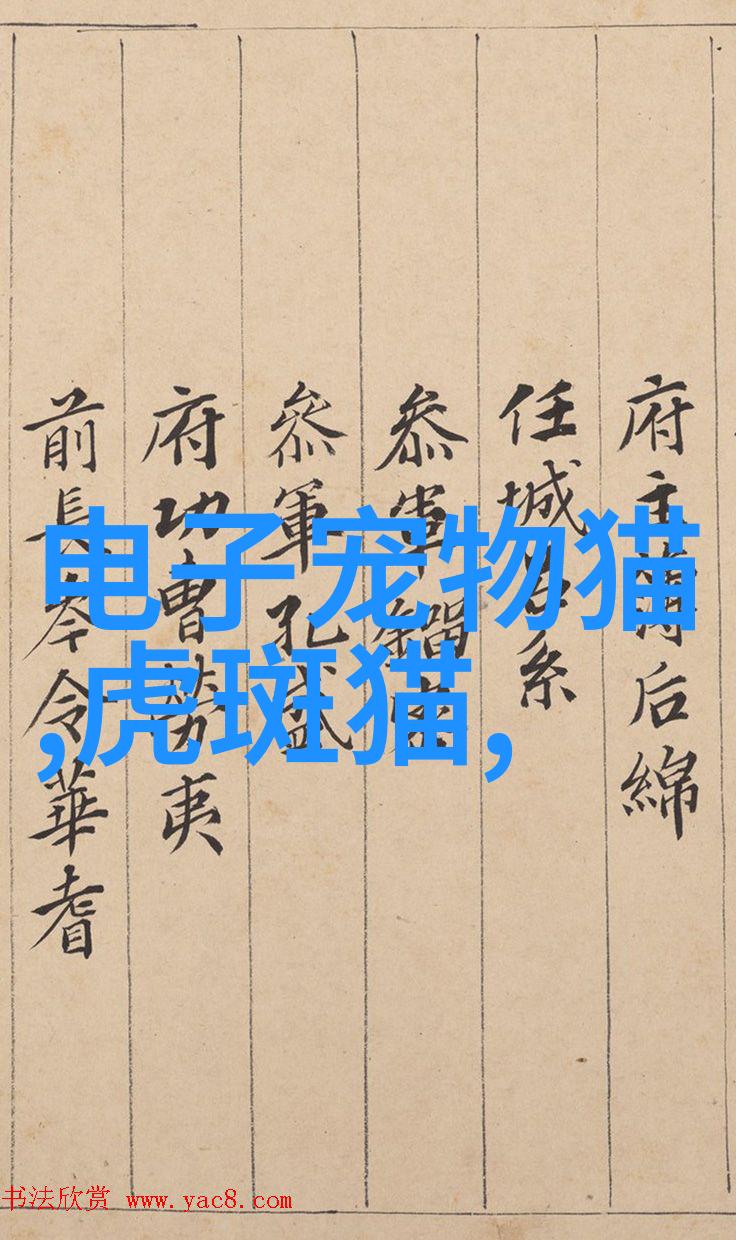 电子宠物猫
,虎斑猫,
府主簿后綿
任城呂系
叅軍
叅軍孔盛
府功曹勞夷
前長岑令華耆
书法欣赏 www.yac8.com